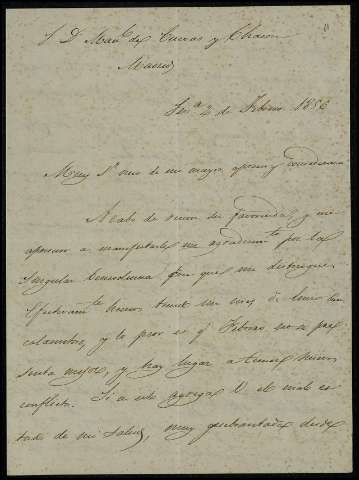 S. D. Man.l de Cuevas y Chacon
Madrid
Sev.a 4 de Febrero 1856
Muy S.r mio de mi mayor aprecio y consideracion
Acabo de recivir su favorecida, y me
apresuro a manifestarle mi agradecim.to por la
singular benevolencia con que me distingue.
Efectivam.te hemos tenido un mes de
calamitoso, y lo peor es q.e Febrero no se pre
senta mejor, y hay lugar a temer nuevos
conflictos. Si a esto agrega V. el mal es
tado de mi salud, muy quebrantada desde